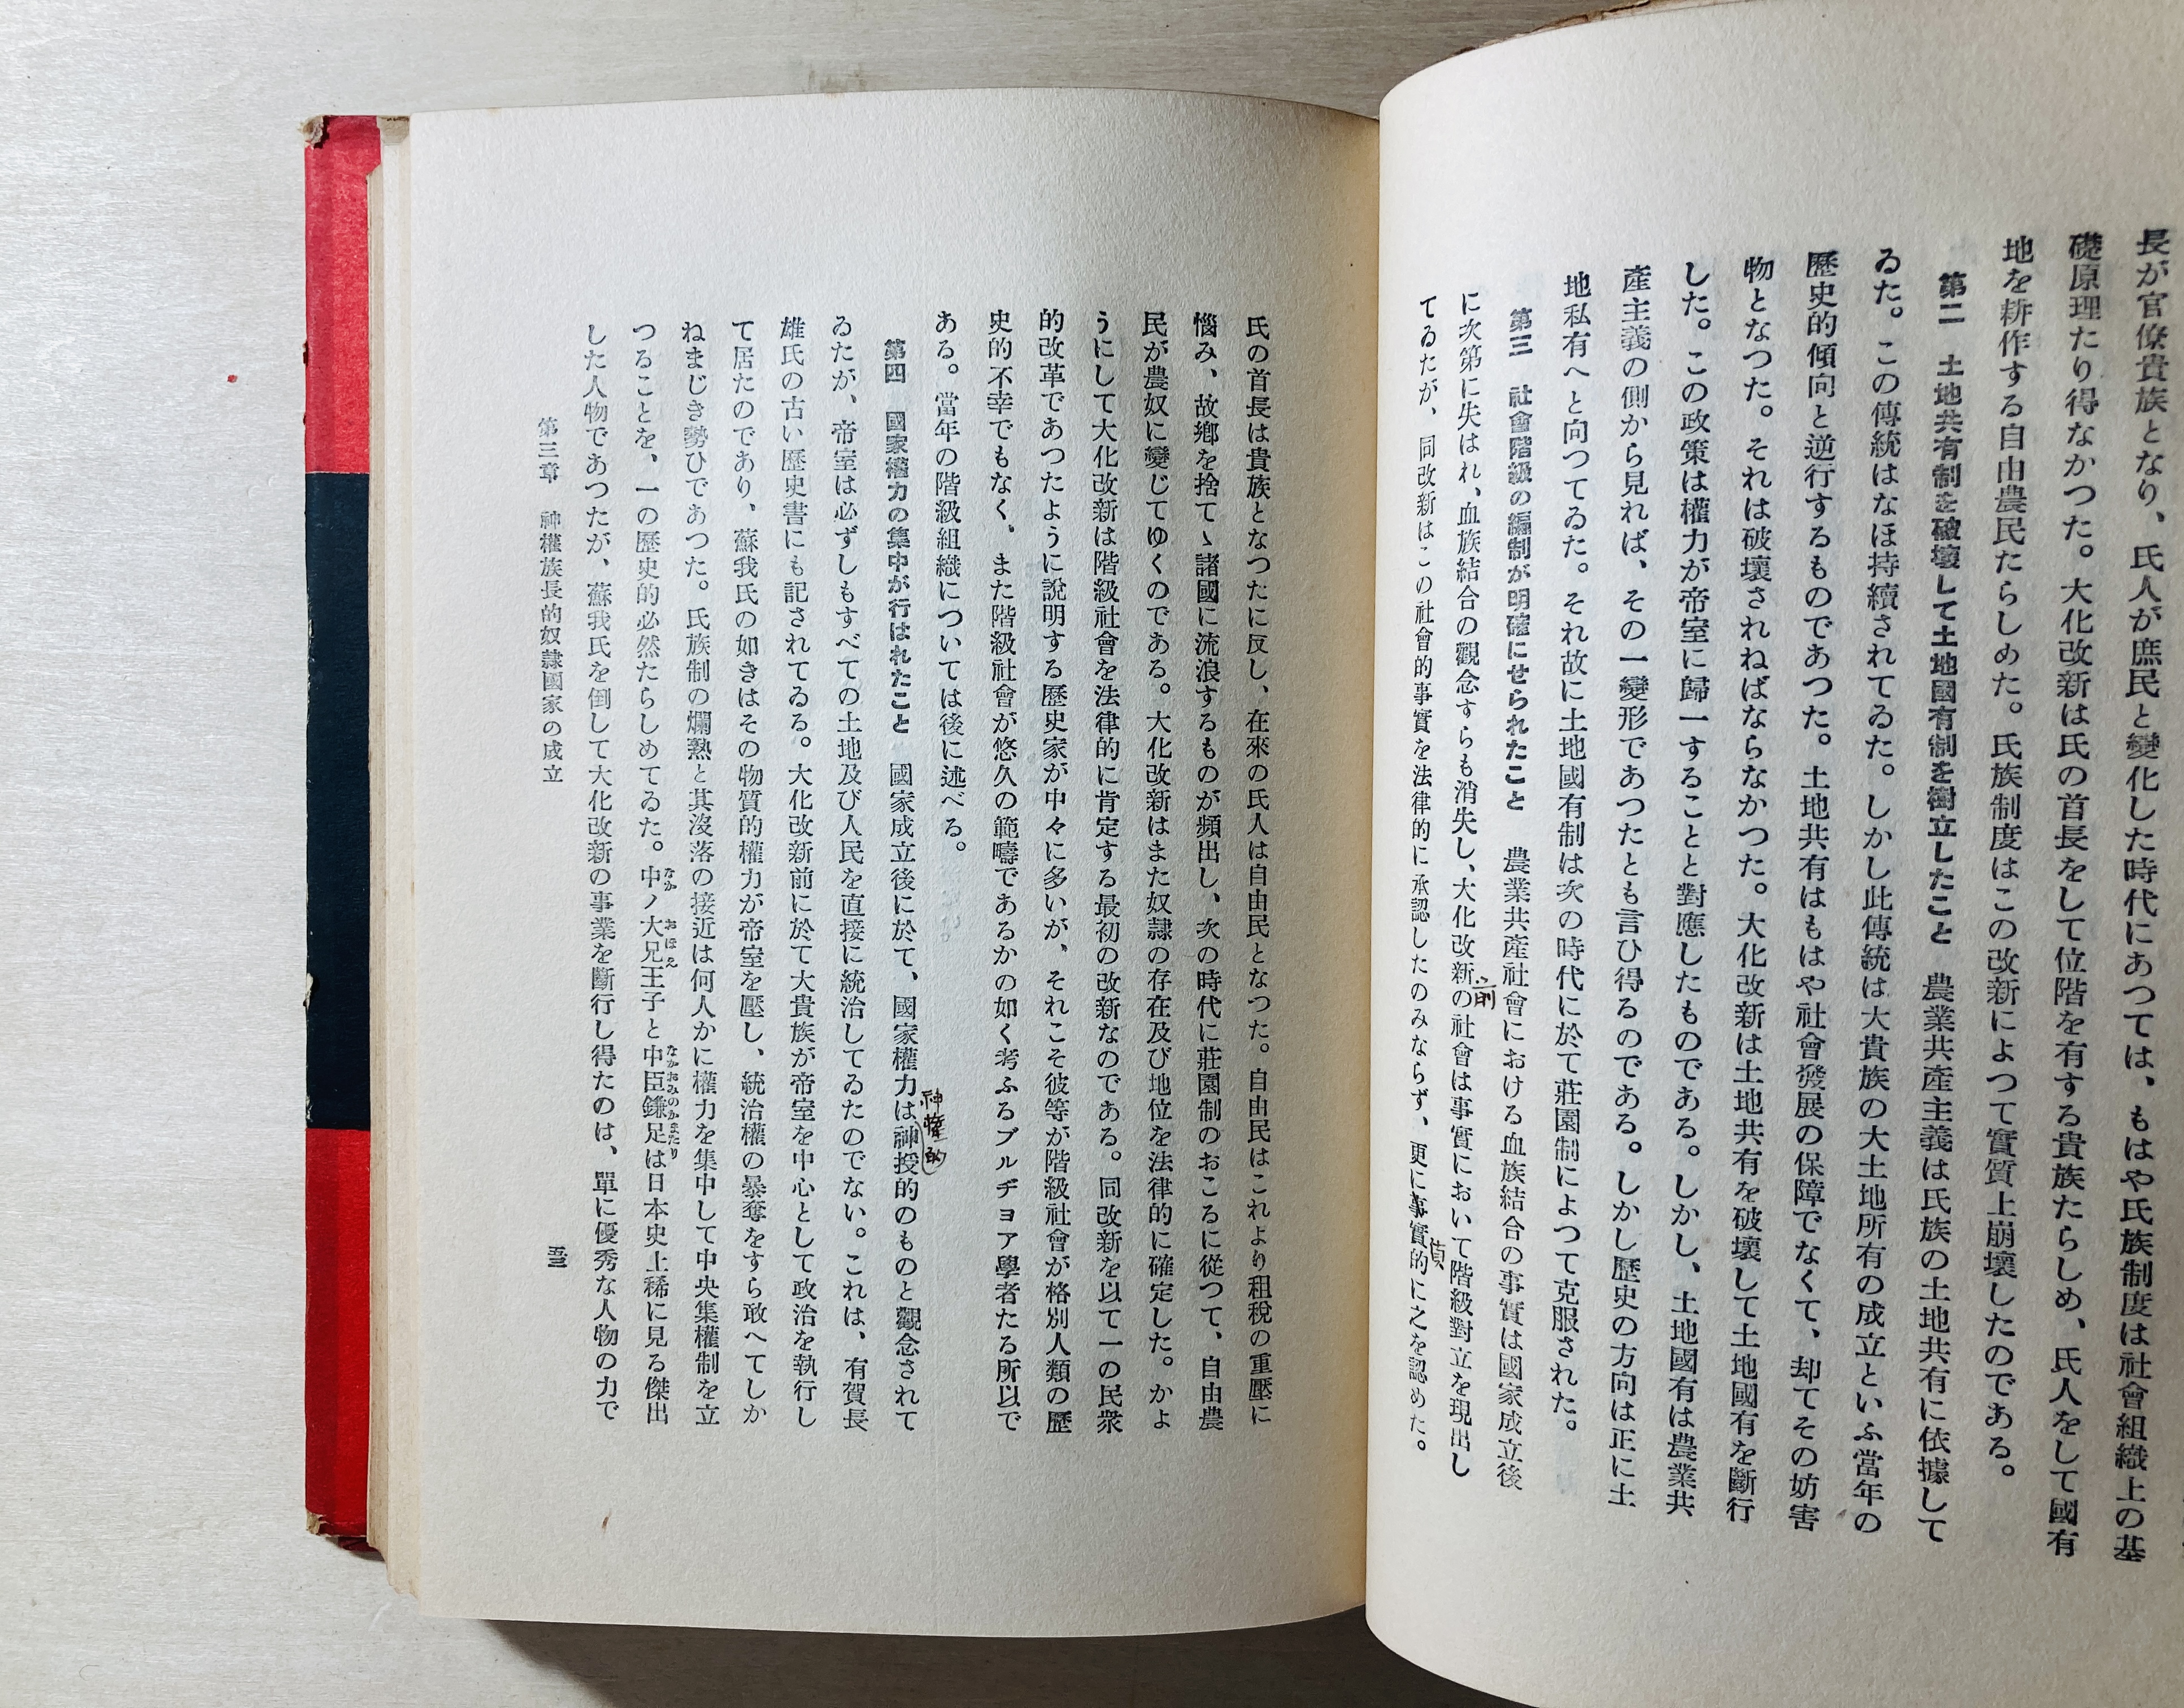 長が官僚貴族となり、氏人が庶民と變化した時代にあつては、もはや氏族制度は社會組織上の基
礎原理たり得なかつた。大化改新は氏の首長をして位階を有する貴族たらしめ、氏人をして國有
地を耕作する自由農民たらしめた。氏族制度はこの改新によつて實質上崩壞したのである。
第二　土地共有制を破壞して土地國有制を樹立したこと　農業共產主義は氏族の土地共有に依據して
ゐた。この傳統はなほ持續されてゐた。しかし此傳統は大貴族の大土地所有の成立といふ當年の
歷史的傾向と逆行するものであつた。土地共有はもはや社會發展の保障でなくて、却てその妨害
物となつた。それは破壞されねばならなかつた。大化改新は土地共有を破壞して土地國有を斷行
した。この政策は權力が帝室に歸一することと對應したものである。しかし、土地國有は農業共
產主義の側から見れば、その一變形であつたとも言ひ得るのである。しかし歷史の方向は正に土
地私有へと向つてゐた。それ故に土地國有制は次の時代に於て莊園制によつて克服された。
第三　社會階級の編制が明確にせられたこと　農業共產社會における血族結合の事實は國家成立後
に次第に失はれ、血族結合の觀念すらも消失し、大化改新の社會は事實において階級對立を現出し
前
てゐたが、同改新はこの社會的事實を法律的に承認したのみならず、更に事實的に之を認めた。
氏の首長は貴族となつたに反し、在來の氏人は自由民となつた。自由民はこれより租稅の重壓に
惱み、故鄕を捨てゝ諸國に流浪するものが頻出し、次の時代に莊園制のおこるに從つて、自由農
民が農奴に變じてゆくのである。大化改新はまた奴隷の存在及び地位を法律的に確定した。かよ
うにして大化改新は階級社會を法律的に肯定する最初の改新なのである。同改新を以て一の民衆
的改革であつたように說明する歷史家が中々に多いが、それこそ彼等が階級社會が格別人類の歷
史的不幸でもなく、また階級社會が悠久の範疇であるかの如く考ふるブルヂョア學者たる所以で
ある。當年の階級組織については後に述べる。
第四　國家權力の集中が行はれたこと　國家成立後に於て、國家權力は神授的のものと觀念されて
神權的
ゐたが、帝室は必ずしもすべての土地及び人民を直接に統治してゐたのでない。これは、有賀長
雄氏の古い歷史書にも記されてゐる。大化改新前に於て大貴族が帝室を中心として政治を執行し
て居たのであり、蘇我氏の如きはその物質的權力が帝室を壓し、統治權の暴奪をすら敢へてしか
ねまじき勢ひであつた。氏族制の爛熟と其沒落の接近は何人かに權力を集中して中央集權制を立
つることを、一の歷史的必然たらしめてゐた。中ノ大兄王子と中臣鎌足は日本史上稀に見る傑出
なか　おほえ　なかおみのかまたり
した人物であつたが、蘇我氏を倒して大化改新の事業を斷行し得たのは、單に優秀な人物の力で
第三章　神權族長的奴隷國家の成立
五三